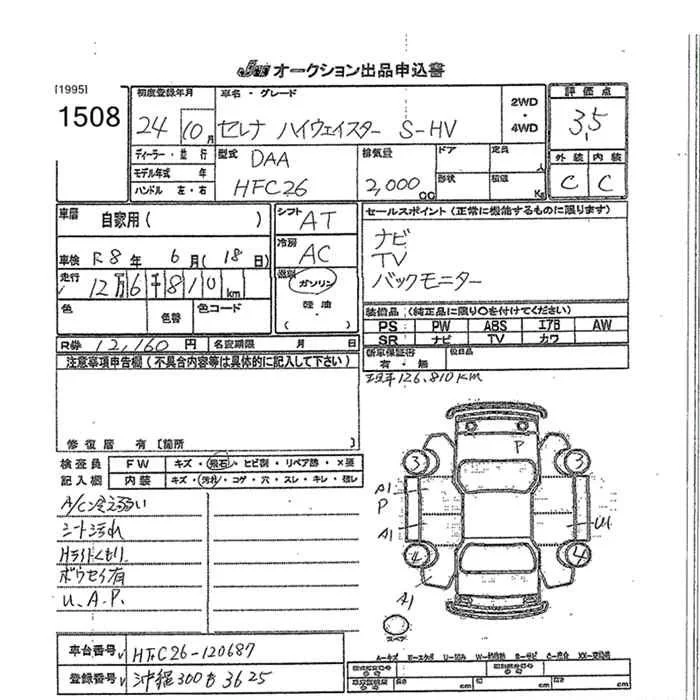 JU オークション出品申込書
[1995]
1508
初度登録年月
24 10月
車名・グレード
セレナ ハイウェイスター S-HV
2WD
・
4WD
評価点
3.5
外装 内装
C C
ディーラー・並行
モデル年式 年
ハンドル 左・右
型式
DAA
HFC26
排気量
2,000 cc
ドア
定員 人
形状
積載 Kg
車歴 自家用( )
シフト AT
車検 R8年 6月(18日)
冷房 AC
走行 12万6千810km
燃料 ガソリン
軽油
( )
色 色替 色コード
セールスポイント(正常に機能するものに限ります)
ナビ
TV
バックモニター
装備品(純正品に限り○を付けてください)
PS PW ABS エアB AW
SR ナビ TV カワ
R券 12,160円 名変期限 月 日
新車保証書 有・無
後日品
注意事項申告欄(不具合内容等は具体的に記入して下さい)
現车126,810KM
修復歴 有[箇所 ]
検査員
記入欄
FW キズ・飛石・ヒビ割・リペア跡・×要
内装 キズ・汚れ・コゲ・穴・スレ・キレ・
A/C冷え弱い
シート汚れ
Hライトくもり
ボウセイ有
U.A.P.
P
3 3
A1
P
A1
U1
4 4
A1
スペア
A-キズ E-エクボ U-凹み W-補修跡 S-サビ C-腐食 XX-交換済
車台番号 HFC26-120687
登録番号 沖縄300 3625
長さ cm 幅 cm 高さ cm